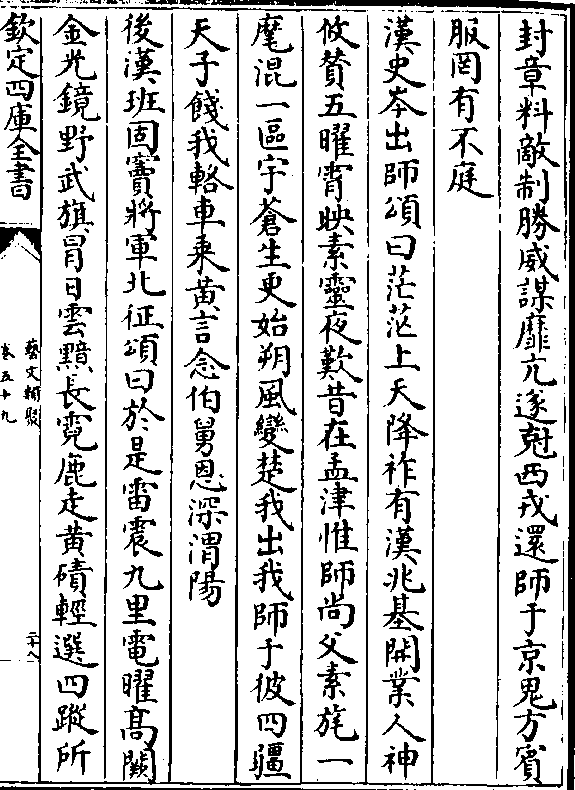 封章料敵制勝威謀靡亢遂尅西戎還師于京鬼方賓
服罔有不庭
漢史岑出師頌曰茫茫上天降祚有漢兆基開業人神
攸贊五曜宵映素靈夜歎昔在孟津惟師尚父素旄一
麾混一區宇蒼生更始朔風變楚我出我師于彼四疆
天子餞我輅車乘黃言念伯舅恩深渭陽
後漢班固竇將軍北征頌曰於是雷震九里電曜髙闕
金光鏡野武旗冒日雲黯長霓鹿走黄磧輕選四蹤所
欽定四庫全書
藝文類聚
卷五十九
二十八